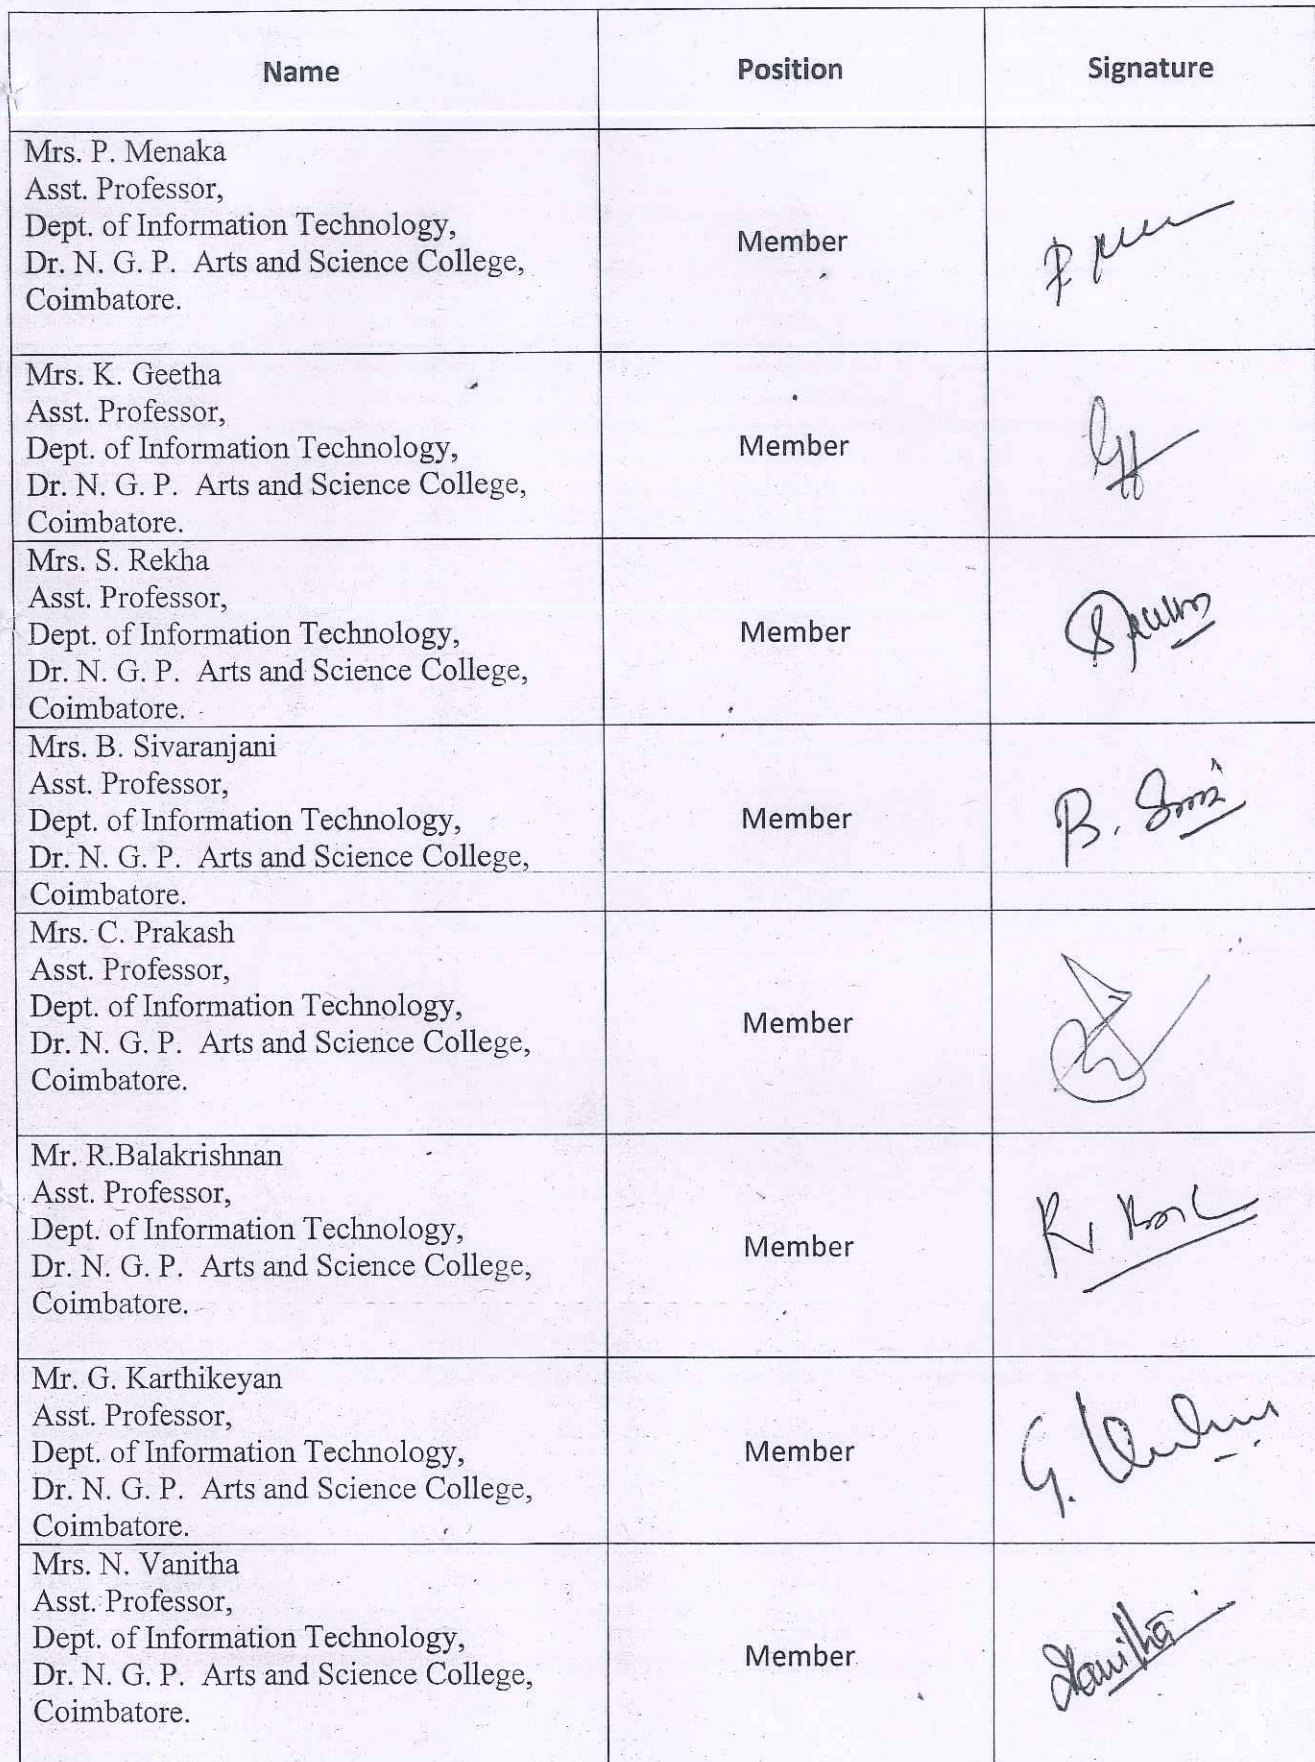 Name Position Signature
Mrs. P. Menaka
Asst. Professor,
Dept. of Information Technology,
Dr. N. G. P. Arts and Science College,
Coimbatore.
Member
Mrs. K. Geetha
Asst. Professor,
Dept. of Information Technology,
Dr. N. G. P. Arts and Science College,
Coimbatore.
Member
Mrs. S. Rekha
Asst. Professor,
Dept. of Information Technology,
Dr. N. G. P. Arts and Science College,
Coimbatore.
Member
Mrs. B. Sivaranjani
Asst. Professor,
Dept. of Information Technology,
Dr. N. G. P. Arts and Science College,
Coimbatore.
Member
B.
Mrs. C. Prakash
Asst. Professor,
Dept. of Information Technology,
Dr. N. G. P. Arts and Science College,
Coimbatore.
Member
Mr. R.Balakrishnan
Asst. Professor,
Dept. of Information Technology,
Dr. N. G. P. Arts and Science College,
Coimbatore.
Member
Mr. G. Karthikeyan
Asst. Professor,
Dept. of Information Technology,
Dr. N. G. P. Arts and Science College,
Coimbatore.
Member
G.
Mrs. N. Vanitha
Asst. Professor,
Dept. of Information Technology,
Dr. N. G. P. Arts and Science College,
Coimbatore.
Member